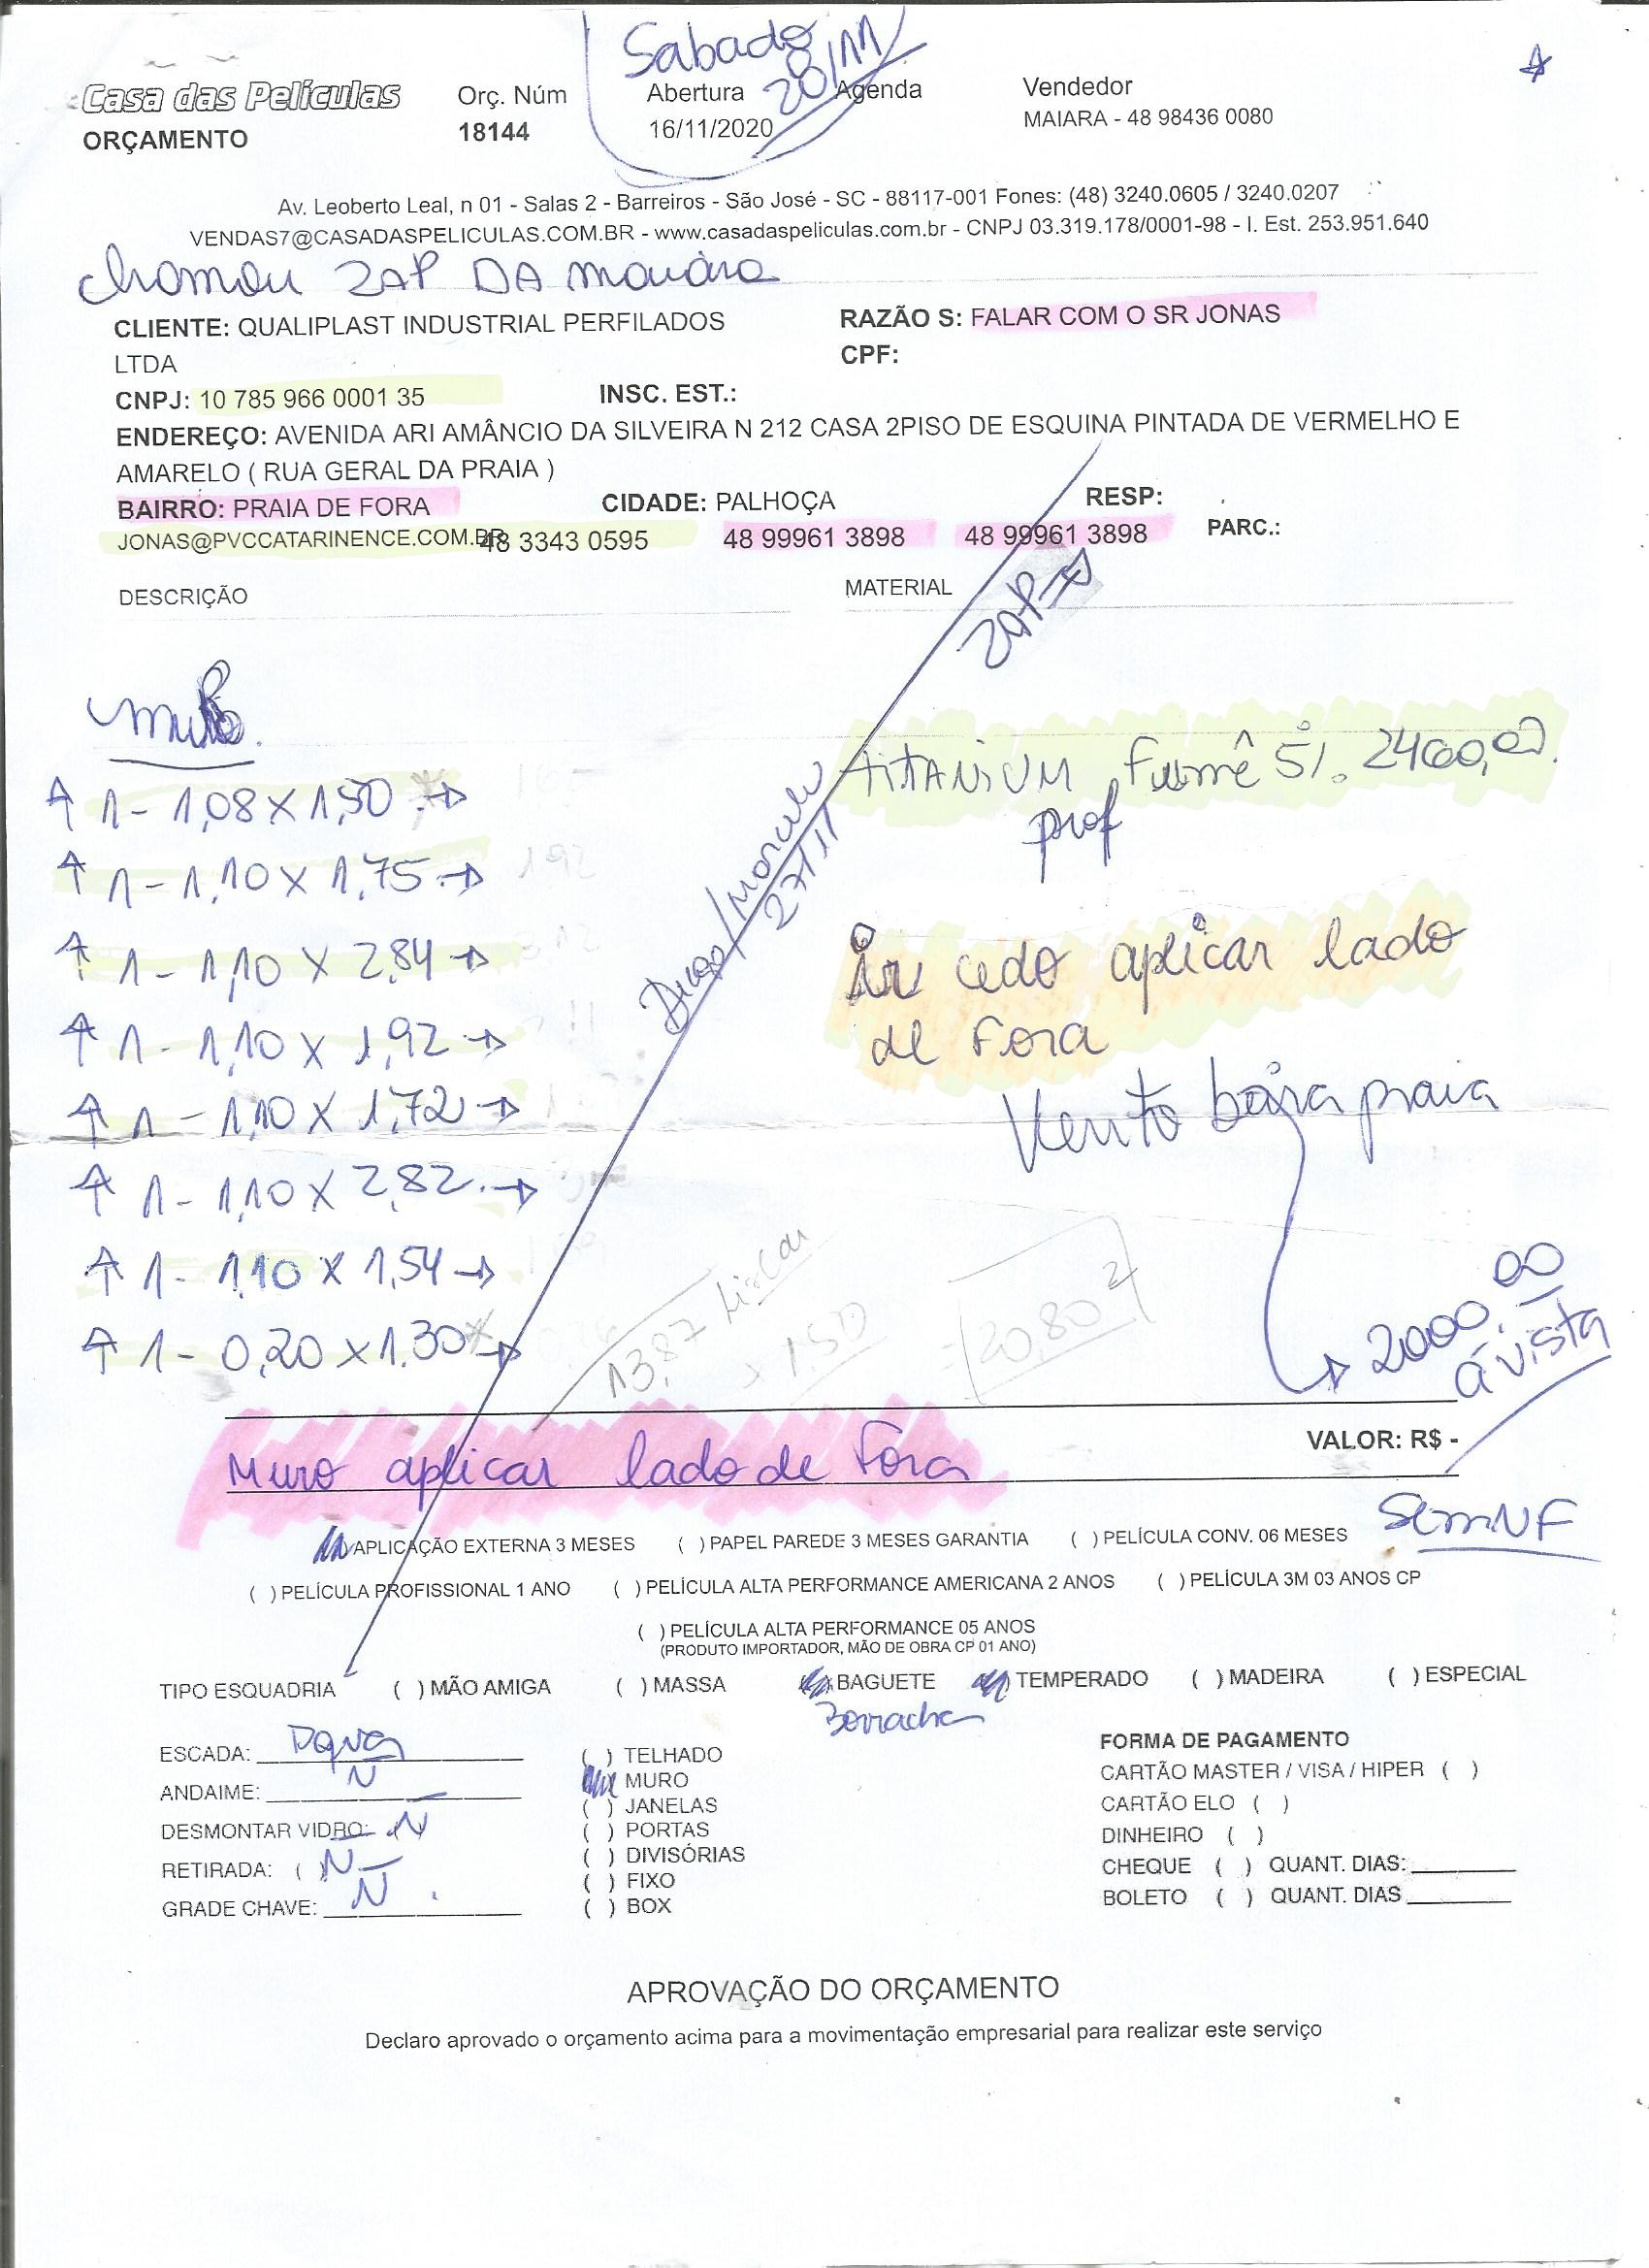 Sabado
28/11
Casa das Películas
Orç. Núm
Abertura
Agenda
Vendedor
ORÇAMENTO
18144
16/11/2020
MAIARA - 48 98436 0080
Av. Leoberto Leal, n 01 - Salas 2 - Barreiros - São José - SC - 88117-001 Fones: (48) 3240.0605 / 3240.0207
VENDAS7@CASADASPELICULAS.COM.BR - www.casadaspeliculas.com.br - CNPJ 03.319.178/0001-98 - I. Est. 253.951.640
chamou ZAP DA maiara
CLIENTE: QUALIPLAST INDUSTRIAL PERFILADOS
LTDA
RAZÃO S: FALAR COM O SR JONAS
CPF:
CNPJ: 10 785 966 0001 35
INSC. EST.:
ENDEREÇO: AVENIDA ARI AMÂNCIO DA SILVEIRA N 212 CASA 2PISO DE ESQUINA PINTADA DE VERMELHO E
AMARELO ( RUA GERAL DA PRAIA )
BAIRRO: PRAIA DE FORA
CIDADE: PALHOÇA
RESP:
JONAS@PVCCATARINENCE.COM.BR
48 3343 0595
48 99961 3898
48 99961 3898
PARC.:
ZAP
DESCRIÇÃO
MATERIAL
muro.
↑ 1 - 1,08 X 1,50 →
↑ 1 - 1,10 X 1,75 →
↑ 1 - 1,10 X 2,84 →
↑ 1 - 1,10 X 1,92 →
↑ 1 - 1,10 X 1,72 →
↑ 1 - 1,10 X 2,82 →
↑ 1 - 1,10 X 1,54 →
↑ 1 - 0,20 X 1,30 →
27/11
TITANIUM Fumê 5%. 2460,00.
prof
Ir cedo aplicar lado
de Fora
Vento beira praia
13,87 Lisear
x 150
= 20,80²
2000,00
á vista
VALOR: R$ -
Muro aplicar lado de Fora
Sem NF
APLICAÇÃO EXTERNA 3 MESES
( ) PAPEL PAREDE 3 MESES GARANTIA
( ) PELÍCULA CONV. 06 MESES
( ) PELÍCULA PROFISSIONAL 1 ANO
( ) PELÍCULA ALTA PERFORMANCE AMERICANA 2 ANOS
( ) PELÍCULA 3M 03 ANOS CP
( ) PELÍCULA ALTA PERFORMANCE 05 ANOS
(PRODUTO IMPORTADOR, MÃO DE OBRA CP 01 ANO)
TIPO ESQUADRIA
( ) MÃO AMIGA
( ) MASSA
BAGUETE
TEMPERADO
( ) MADEIRA
( ) ESPECIAL
Borracha
ESCADA:
ANDAIME: N
DESMONTAR VIDRO: N
RETIRADA: ( ) N
GRADE CHAVE: N
( ) TELHADO
MURO
( ) JANELAS
( ) PORTAS
( ) DIVISÓRIAS
( ) FIXO
( ) BOX
FORMA DE PAGAMENTO
CARTÃO MASTER / VISA / HIPER ( )
CARTÃO ELO ( )
DINHEIRO ( )
CHEQUE ( ) QUANT. DIAS:
BOLETO ( ) QUANT. DIAS
APROVAÇÃO DO ORÇAMENTO
Declaro aprovado o orçamento acima para a movimentação empresarial para realizar este serviço